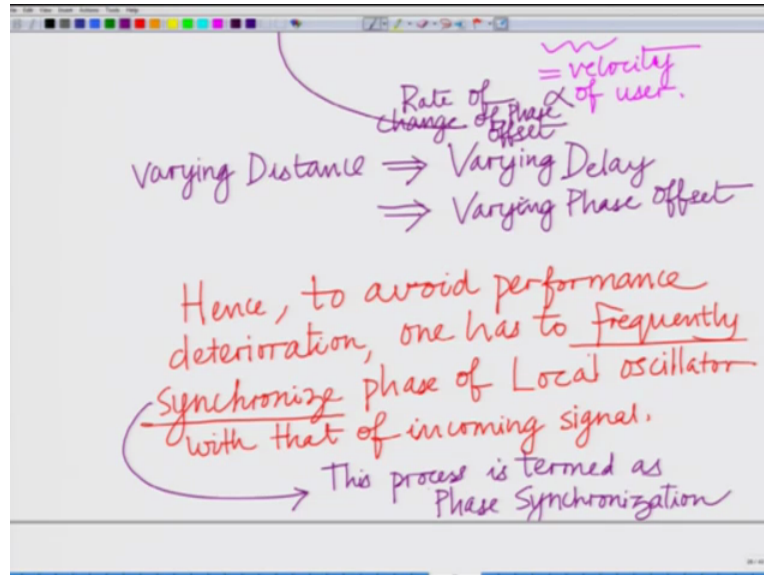 = velocity
of user.
Rate of ∝
change of Phase
offset
Varying Distance ⇒ Varying Delay
⇒ Varying Phase Offset
Hence, to avoid performance
deteriorration, one has to frequently
synchronize phase of Local oscillator
with that of incoming signal.
This process is termed as
Phase Synchronization